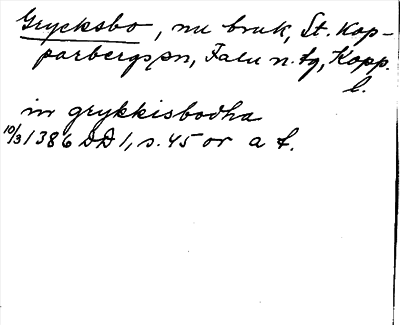 Grycksbo, nu bruk, St. Kop-
parbergs sn, Falu n. tg, Kopp.
l.
in grykkisbodha
10/3 1386 DD 1, s. 45 or a f.